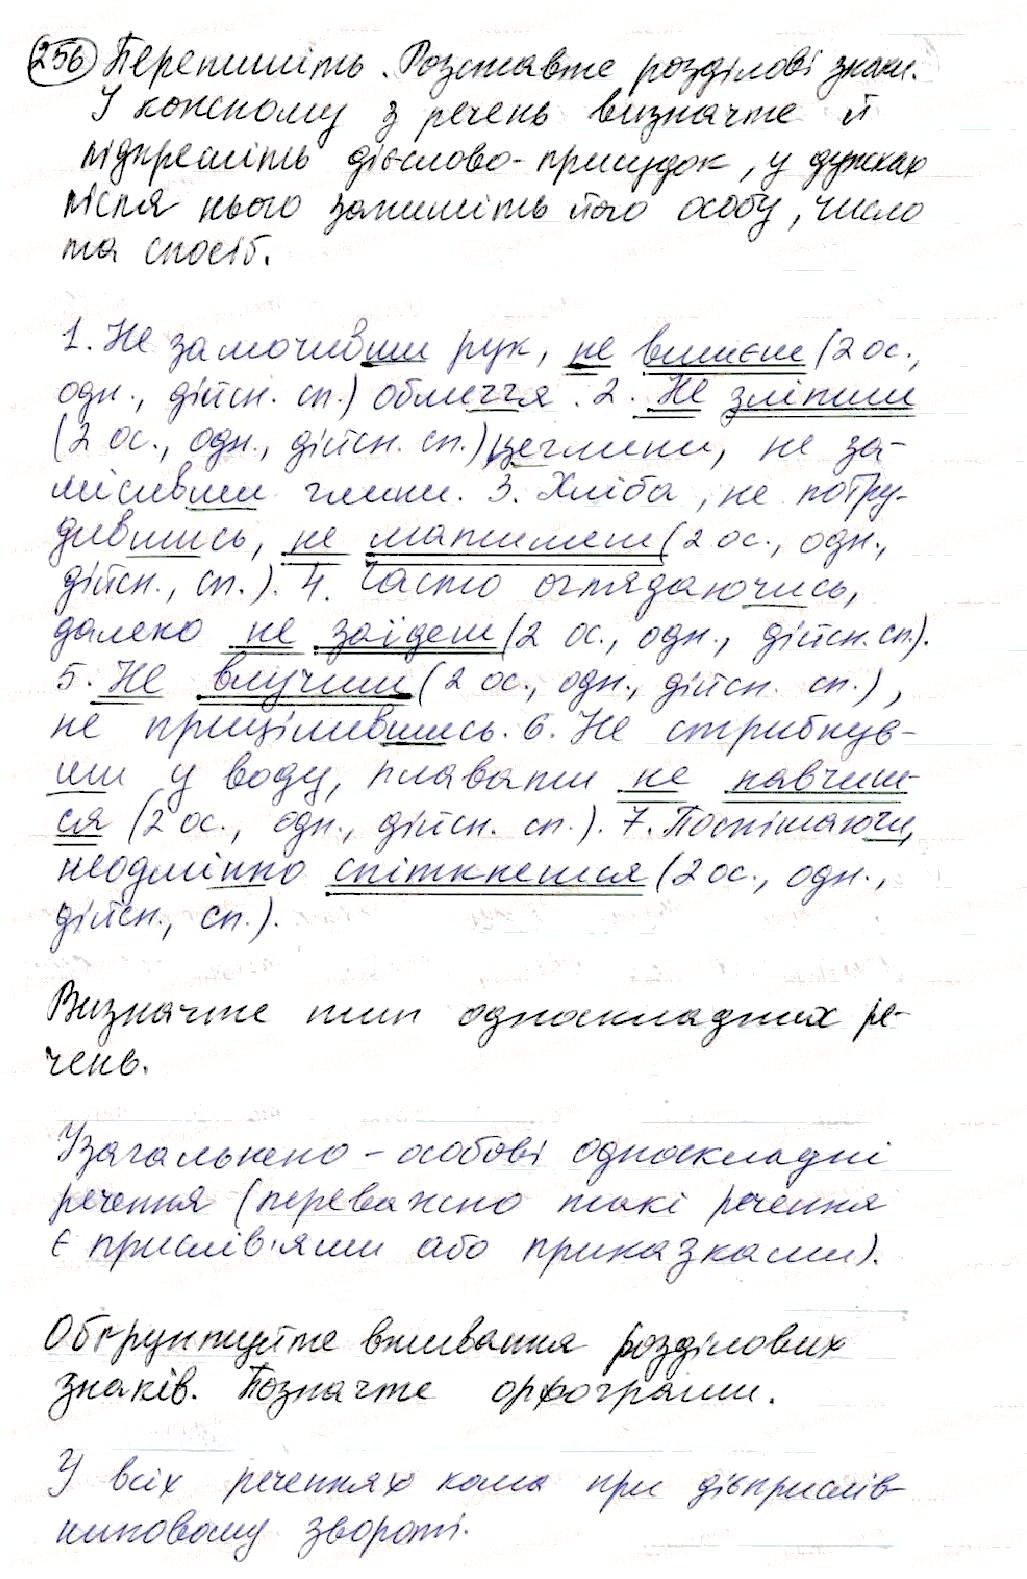 256 Перепишіть. Розставте розділові знаки.
У кожному з речень визначте й
підкресліть дієслово-присудок, у дужках
після нього запишіть його особу, число
та спосіб.
1. Не замочивши рук, не вмиєш (2 ос.,
одн., дійсн. сп.) обличчя. 2. Не зліпиш
(2 ос., одн., дійсн. сп.) цеглини, не за-
місивши глини. 3. Хліба, не потру-
дившись, не матимеш (2 ос., одн.,
дійсн., сп.). 4. Часто оглядаючись,
далеко не зайдеш (2 ос., одн., дійсн. сп.).
5. Не влучиш (2 ос., одн., дійсн. сп.),
не прицілившись. 6. Не стрибнув-
ши у воду, плавати не навчиш-
ся (2 ос., одн., дійсн. сп.). 7. Поспішаючи,
неодмінно спіткнешся (2 ос., одн.,
дійсн., сп.).
Визначте тип односкладних ре-
чень.
Узагальнено-особові односкладні
речення (переважно такі речення
є прислів'ями або приказками).
Обґрунтуйте вживання розділових
знаків. Позначте орфограми.
У всіх реченнях кома при дієприслів-
никовому звороті.